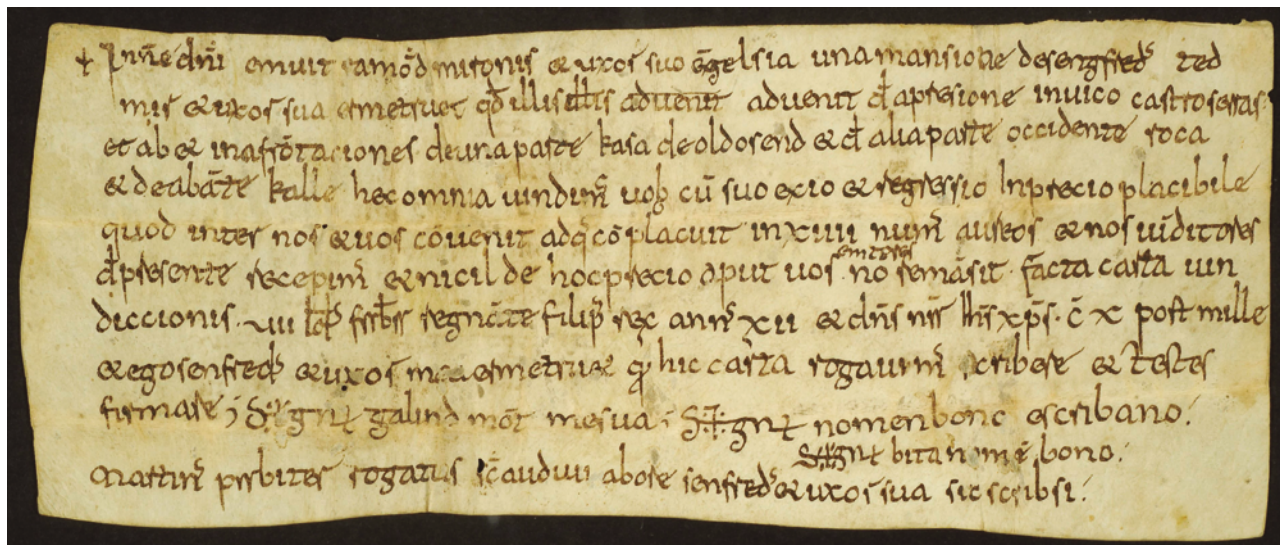 + In nne dni emuit ramod mironis & uxor suo engelsia una mansione de sengfred ted
mir & uxor sua ermetruet qd illis illis advenit advenit d apresione in uico castro serras
et ab & in afrotaciones de una parte kasa de oldosend & d alia parte occidente roca
& de abate kalle hec omnia uindim uob cu suo exio & regressio In precio placibile
quod inter nos & uos couenit adq coplacuit in xiiii num aureos & nos uiditores
d presente recepim & nicil de hoc precio aput uos emtores no remasit facta carta uin
diccionis. uii febr regnate filip rex ann xii & dns nr ihs xps. c x post mille
& ego senfred & uxor mea ermetru& q hic carta rogauim scribere & testes
firmare ; S gn galind mor mesua ; S gn nomen bono escribano.
S gn bita nom e bono.
Martin prsbiter rogatus sc audiui ab ore senfred & uxor sua sic scribsi.